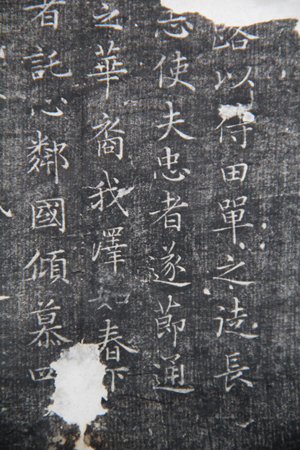 路以待田單之徒長
志使夫忠者遂節通
之華裔我澤如春下
者託心鄰國傾慕四